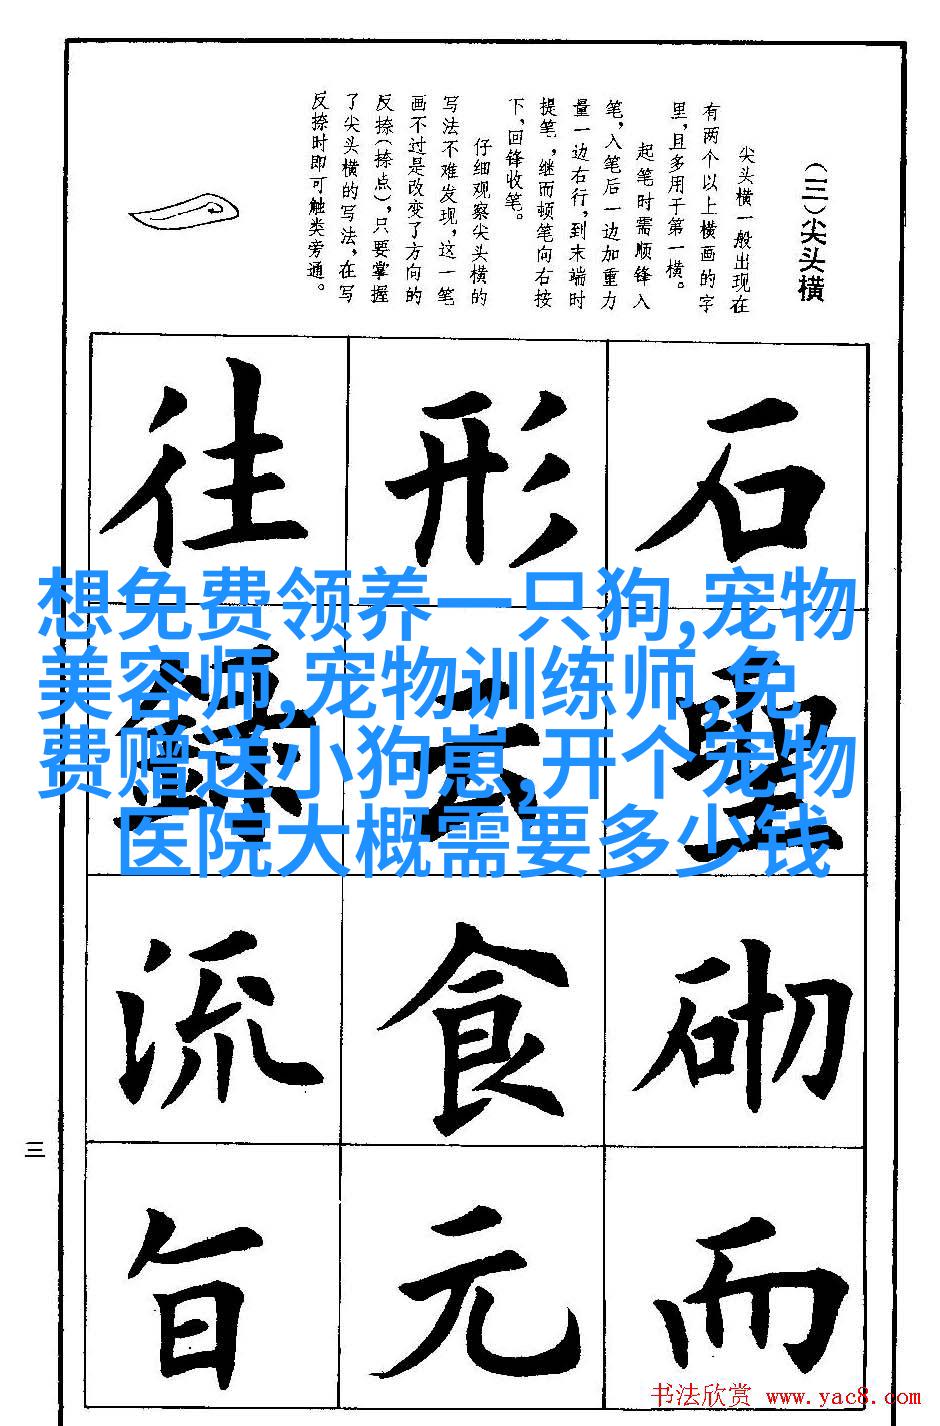 (三)尖头横
尖头横一般出现在
有两个以上横画的字
里,且多用于第一横。
起笔时需顺锋入
笔,入笔后一边加重力
量一边右行,到末端时
提笔,继而顿笔向右按
下,回锋收笔。
仔细观察尖头横的
写法不难发现,这一笔
画不过是改变了方向的
反捺(捺点),只要掌握
了尖头横的写法,在写
反捺时即可触类旁通。
石
形
往
想免费领养一只狗,宠物
美容师,宠物训练师,免
费赠送小狗崽,开个宠物
医院大概需要多少钱
云
砌
食
流
而
元
旨
三
书法欣赏 www.yac8.com